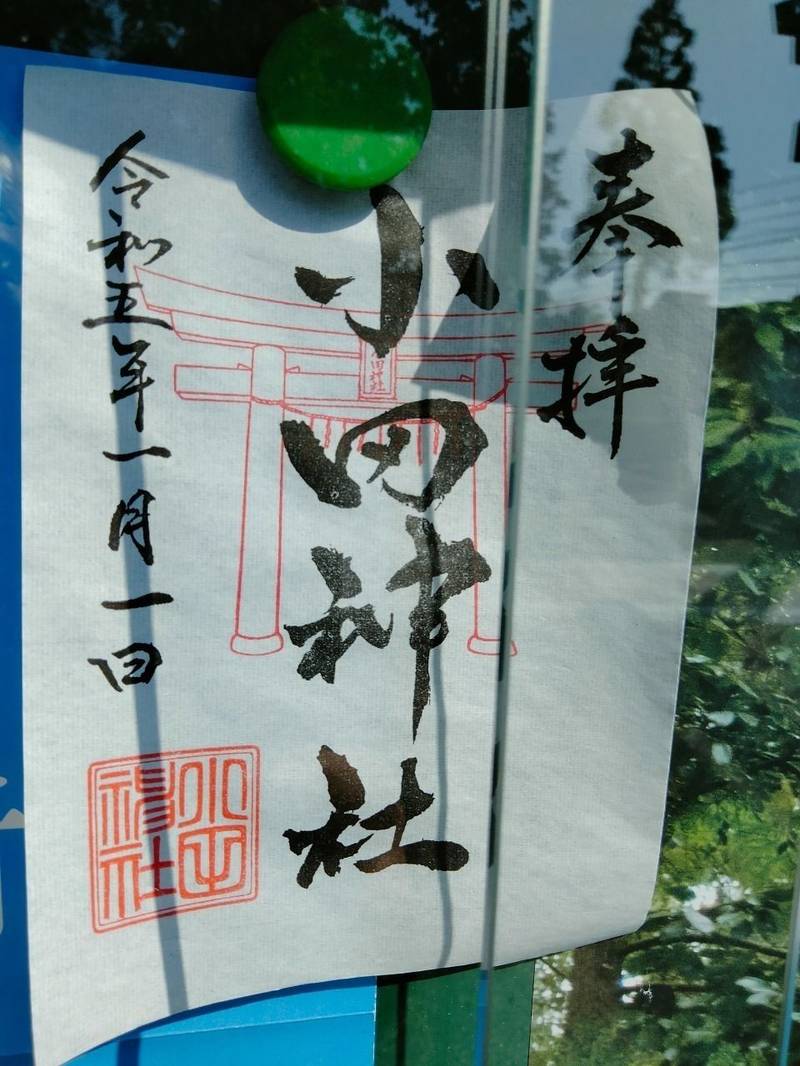 奉拝
小田神社
令和五年一月一日
小田
神社